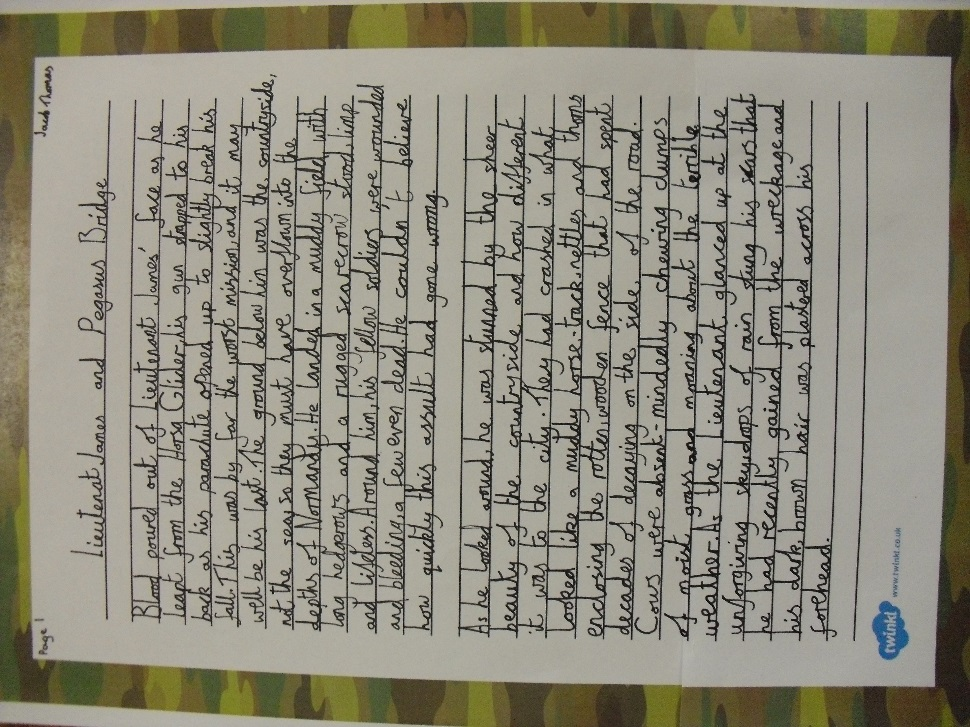 Page 1
Jacob Thomas
Lieutenat James and Pegasus Bridge
Blood poured out of Lieutenant James' face as he
leapt from the Horsa Glider, his gun strapped to his
back as his parachute opened up to slightly break his
fall. This was by far the worst mission, and it may
well be his last. The ground below him was the countryside,
not the sea, so they must have overflown into the
depths of Normandy. He landed in a muddy field with
long hedgerows and a rugged scarecrow stood, limp
and lifeless. Around him, his fellow soldiers were wounded
and bleeding, a few even dead. He couldn't believe
how quickly this assult had gone wrong.
As he looked around, he was stunned by the sheer
beauty of the countryside and how different
it was to the city. They had crashed in what
looked like a muddy horse-track, nettles and thorns
enclosing the rotten, wooden fence that had spent
decades of decaying on the side of the road.
Cows were absent-mindedly chewing clumps
of moist grass and moaning about the terrible
weather. As the Lieutenant glanced up at the
unforgiving sky, drops of rain stung his scars that
he had recently gained from the wreckage and
his dark, brown hair was plastered across his
forehead.
twinkl
www.twinkl.co.uk